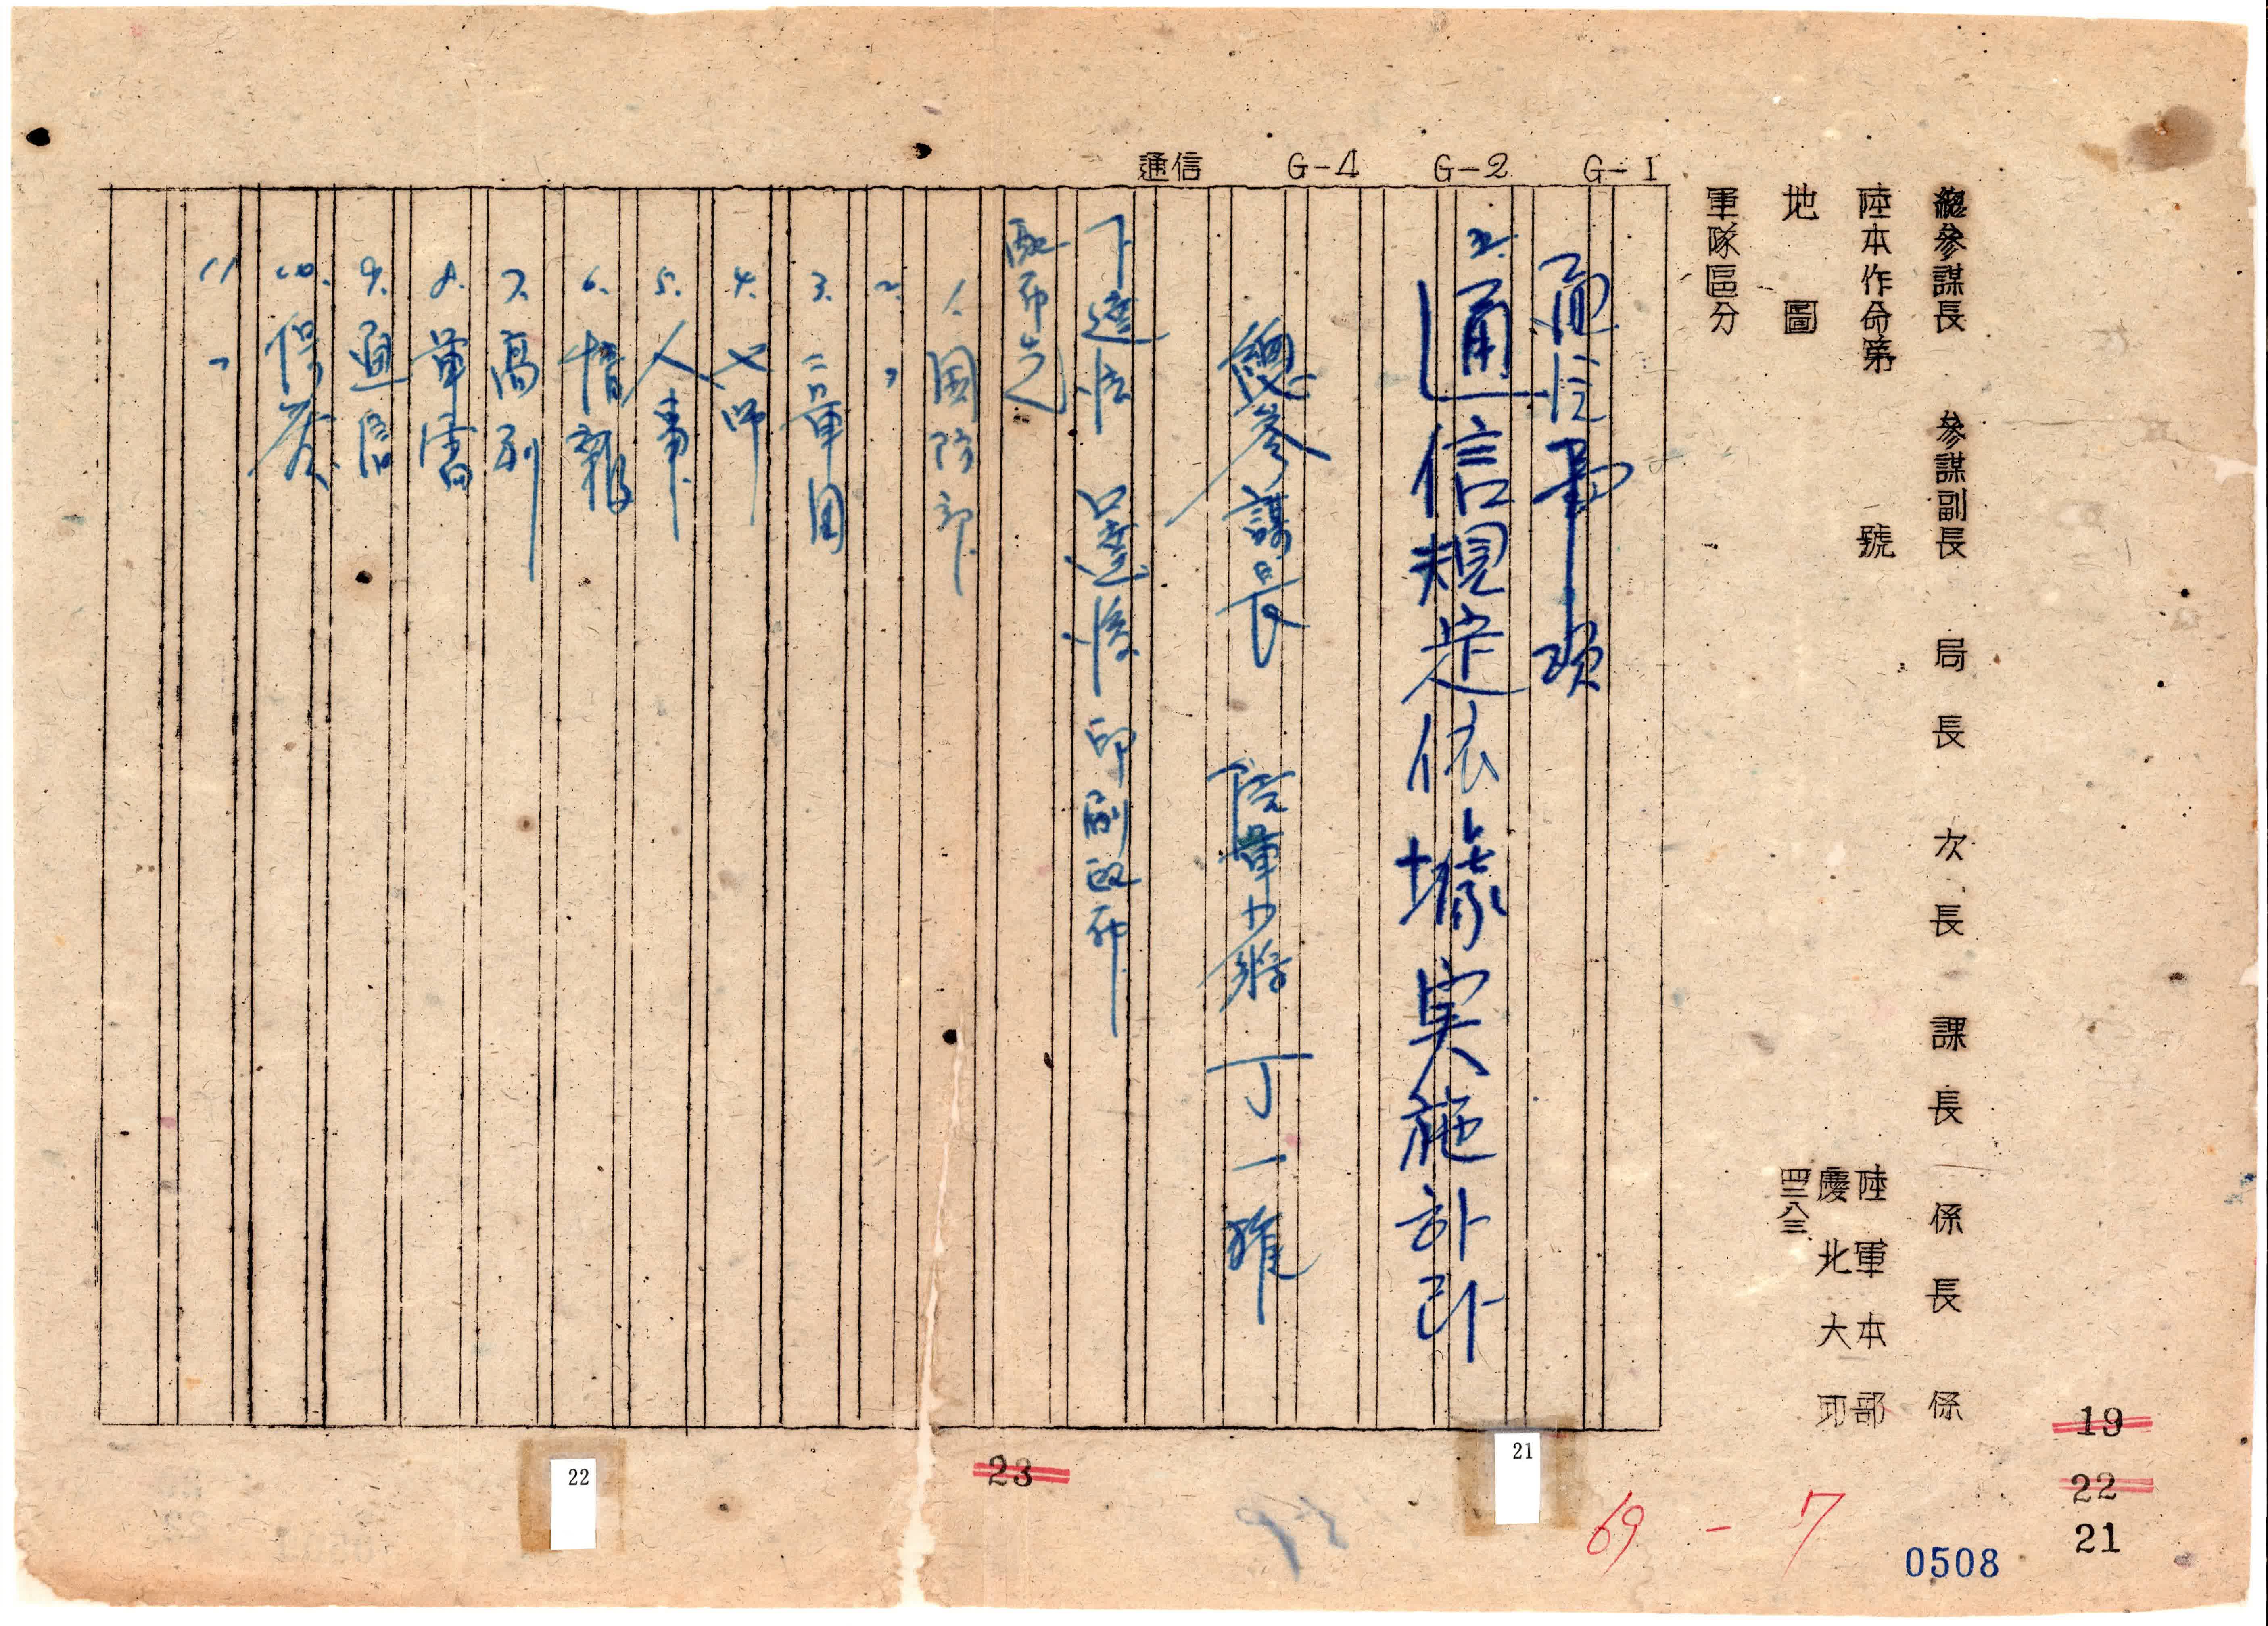 總參謀長 參謀副長 局長 次長 課長 係長 係
陸本作命第 號
陸軍本部
地圖
慶北大邱
四二八三、
軍隊區分
G-1
G-2
G-4
通信
通信事項
通信規定依據実施하라
總參謀長 陸軍少將 丁一權
下達法 口達後印刷配布
配布先
1. 國防部
2. 〃
3. 二軍団
4. 七師
5. 人事
6. 情報
7. 高副
8. 軍需
9. 通信
10.
11
19
22
21
0508
69-7
21
23
22